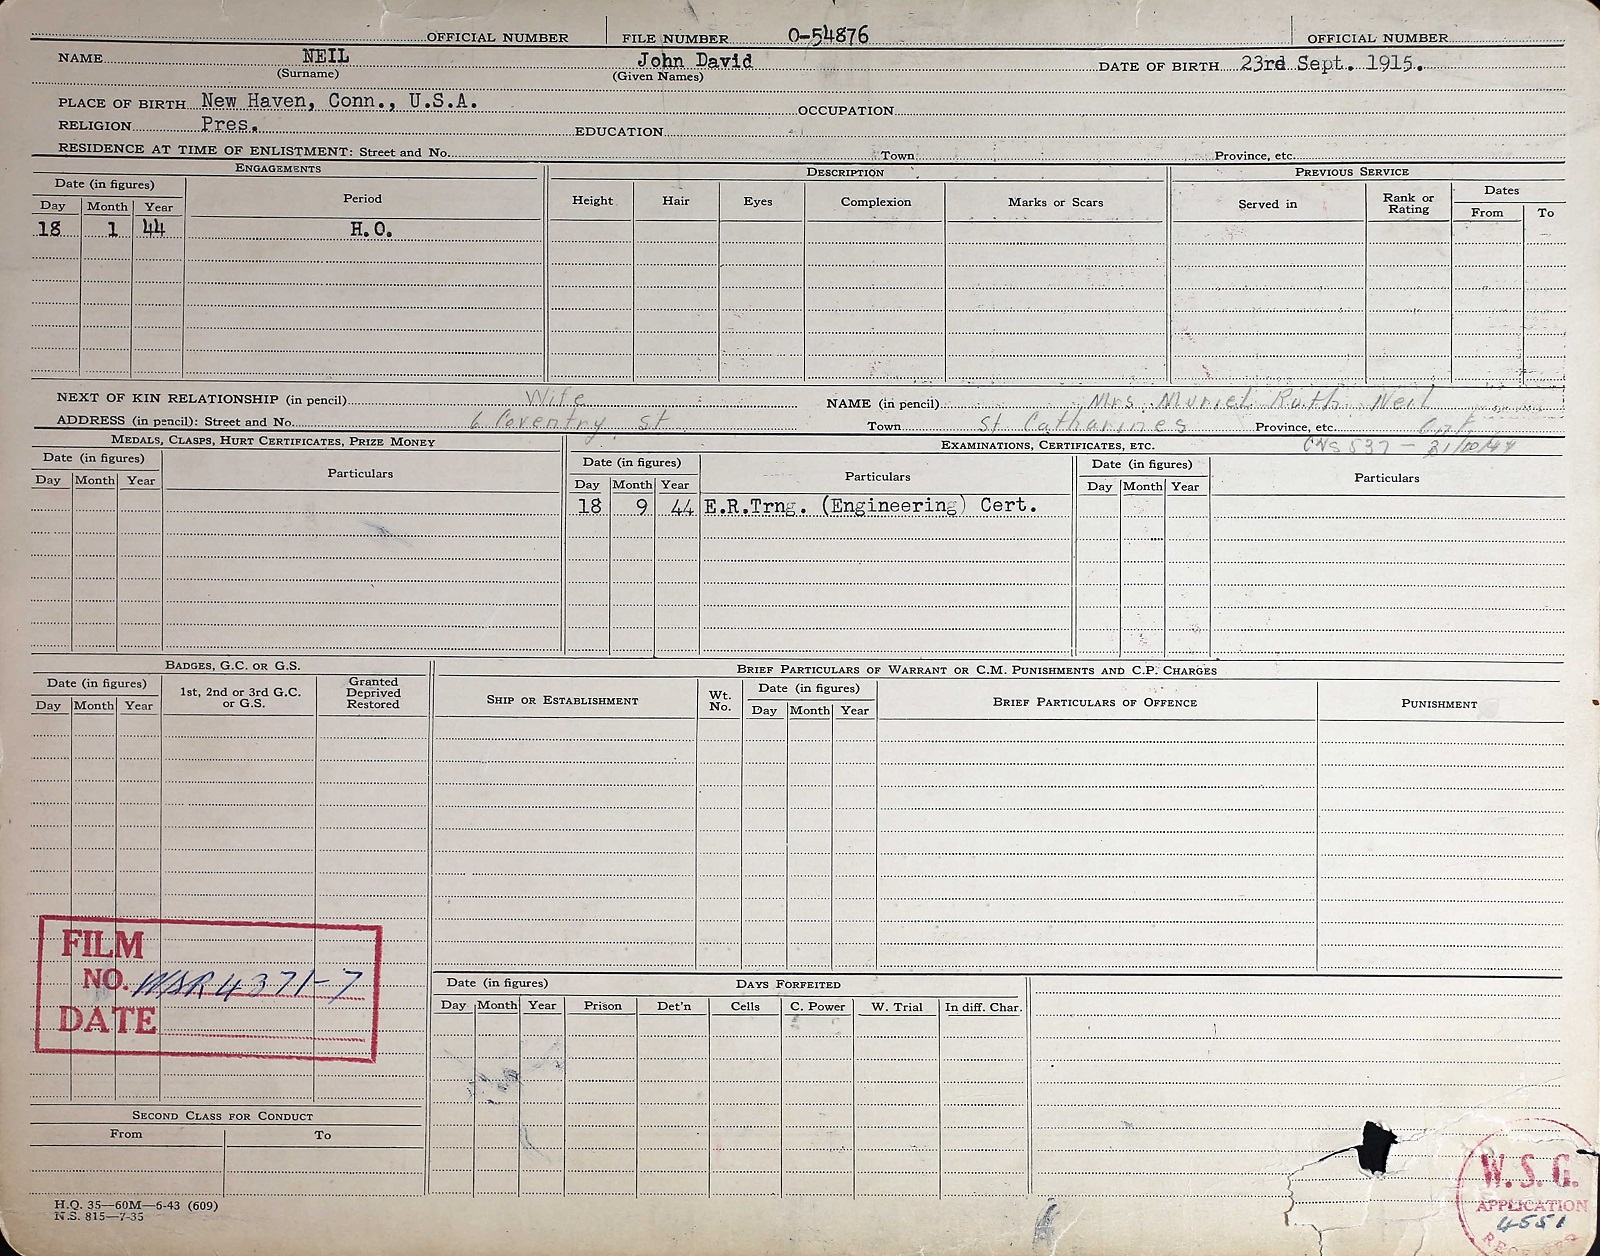 OFFICIAL NUMBER FILE NUMBER O-54876 OFFICIAL NUMBER
NAME NEIL John David DATE OF BIRTH 23rd Sept. 1915.
(Surname) (Given Names)
PLACE OF BIRTH New Haven, Conn., U.S.A. OCCUPATION
RELIGION Pres. EDUCATION
RESIDENCE AT TIME OF ENLISTMENT: Street and No. Town Province, etc.
ENGAGEMENTS DESCRIPTION PREVIOUS SERVICE
Date (in figures) Period Height Hair Eyes Complexion Marks or Scars Served in Rank or Rating Dates
Day Month Year From To
18 1 44 H.O.
NEXT OF KIN RELATIONSHIP (in pencil) Wife NAME (in pencil) Mrs Muriel Ruth Neil
ADDRESS (in pencil): Street and No. 6 Coventry St. Town St Catharines Province, etc. Ont.
MEDALS, CLASPS, HURT CERTIFICATES, PRIZE MONEY EXAMINATIONS, CERTIFICATES, ETC. CNS 537 -
Date (in figures) Particulars Date (in figures) Particulars Date (in figures) Particulars
Day Month Year Day Month Year Day Month Year
18 9 44 E.R.Trng. (Engineering) Cert.
BADGES, G.C. OR G.S. BRIEF PARTICULARS OF WARRANT OR C.M. PUNISHMENTS AND C.P. CHARGES
Date (in figures) 1st, 2nd or 3rd G.C. or G.S. Granted Deprived Restored SHIP OR ESTABLISHMENT Wt. No. Date (in figures) BRIEF PARTICULARS OF OFFENCE PUNISHMENT
Day Month Year Day Month Year
FILM
NO. WSR 4371-7
DATE
Date (in figures) DAYS FORFEITED
Day Month Year Prison Det'n Cells C. Power W. Trial In diff. Char.
SECOND CLASS FOR CONDUCT
From To
H.Q. 35—60M—6-43 (609)
N.S. 815—7-35
W.S.G.
APPLICATION
4551